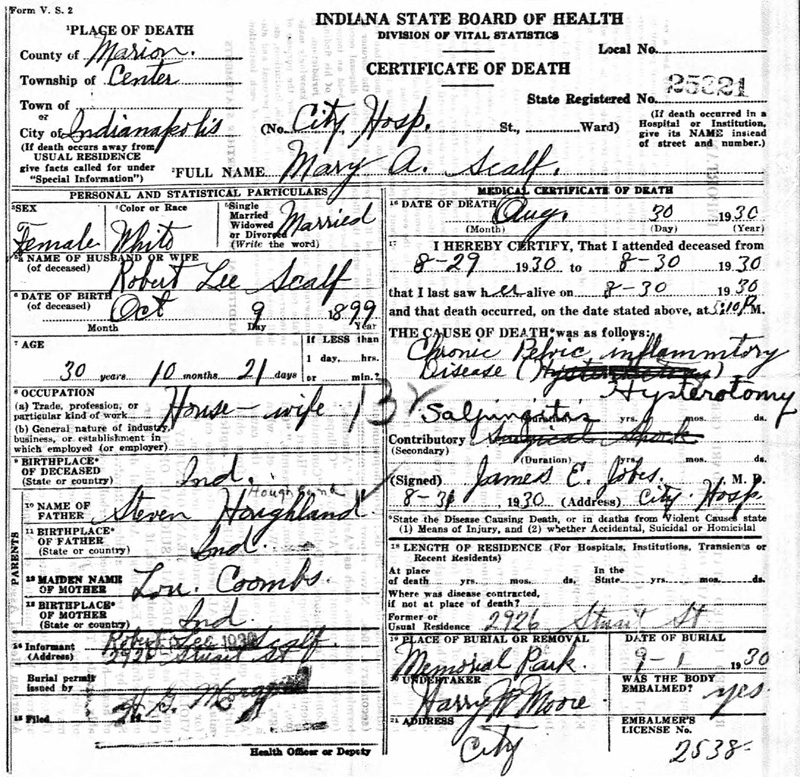 Form V. S. 2
INDIANA STATE BOARD OF HEALTH
DIVISION OF VITAL STATISTICS
CERTIFICATE OF DEATH
Local No.
State Registered No. 25321
¹PLACE OF DEATH
County of Marion.
Township of Center
Town of
or
City of Indianapolis
(No. City Hosp. St., Ward)
(If death occurred in a
Hospital or Institution,
give its NAME instead
of street and number.)
(If death occurs away from
USUAL RESIDENCE
give facts called for under
"Special Information")
²FULL NAME Mary A. Scalf.
PERSONAL AND STATISTICAL PARTICULARS
³SEX
Female
⁴Color or Race
White
⁵Single
Married
Widowed
or Divorced
(Write the word)
Married
NAME OF HUSBAND OR WIFE
(of deceased) Robert Lee Scalf
⁶DATE OF BIRTH
(of deceased) Oct 9 1899
Month Day Year
⁷AGE
30 years 10 months 21 days
If LESS than
1 day, hrs.
or min.?
⁸OCCUPATION
(a) Trade, profession, or
particular kind of work House-wife
(b) General nature of industry,
business, or establishment in
which employed (or employer)
⁹BIRTHPLACE*
OF DECEASED
(State or country) Ind.
PARENTS
Houghland
¹⁰NAME OF
FATHER Steven Houghland
¹¹BIRTHPLACE*
OF FATHER
(State or country) Ind.
¹²MAIDEN NAME
OF MOTHER Lou Coombs.
¹³BIRTHPLACE*
OF MOTHER
(State or country) Ind.
¹⁴Informant Robert Lee Scalf
(Address) 2926 Stuart St
1930
Burial permit
issued by
¹⁵Filed
Health Officer or Deputy
MEDICAL CERTIFICATE OF DEATH
¹⁶DATE OF DEATH Aug. 30 1930
(Month) (Day) (Year)
¹⁷I HEREBY CERTIFY, That I attended deceased from
8-29 1930 to 8-30 1930
that I last saw her alive on 8-30 1930
and that death occurred, on the date stated above, at 5:10 P.M.
THE CAUSE OF DEATH* was as follows:
Chronic Pelvic inflammitory
Disease
Hysterotomy
132
Salpingitis yrs. mos. ds.
Contributory Surgical Shock
(Secondary)
(Duration) yrs. mos. ds.
(Signed) James E. Jobes. M. D.
8-31 1930 (Address) City Hosp.
*State the Disease Causing Death, or in deaths from Violent Causes state
(1) Means of Injury, and (2) whether Accidental, Suicidal or Homicidal
¹⁸LENGTH OF RESIDENCE (For Hospitals, Institutions, Transients or
Recent Residents)
At place
of death yrs. mos. ds.
In the
State yrs. mos. ds.
Where was disease contracted,
if not at place of death?
Former or
Usual Residence 2926 Stuart St
¹⁹PLACE OF BURIAL OR REMOVAL
Memorial Park.
DATE OF BURIAL
9-1 1930
²⁰UNDERTAKER
Harry W Moore
WAS THE BODY
EMBALMED? yes.
²¹ADDRESS
City
EMBALMER'S
LICENSE No.
2538-